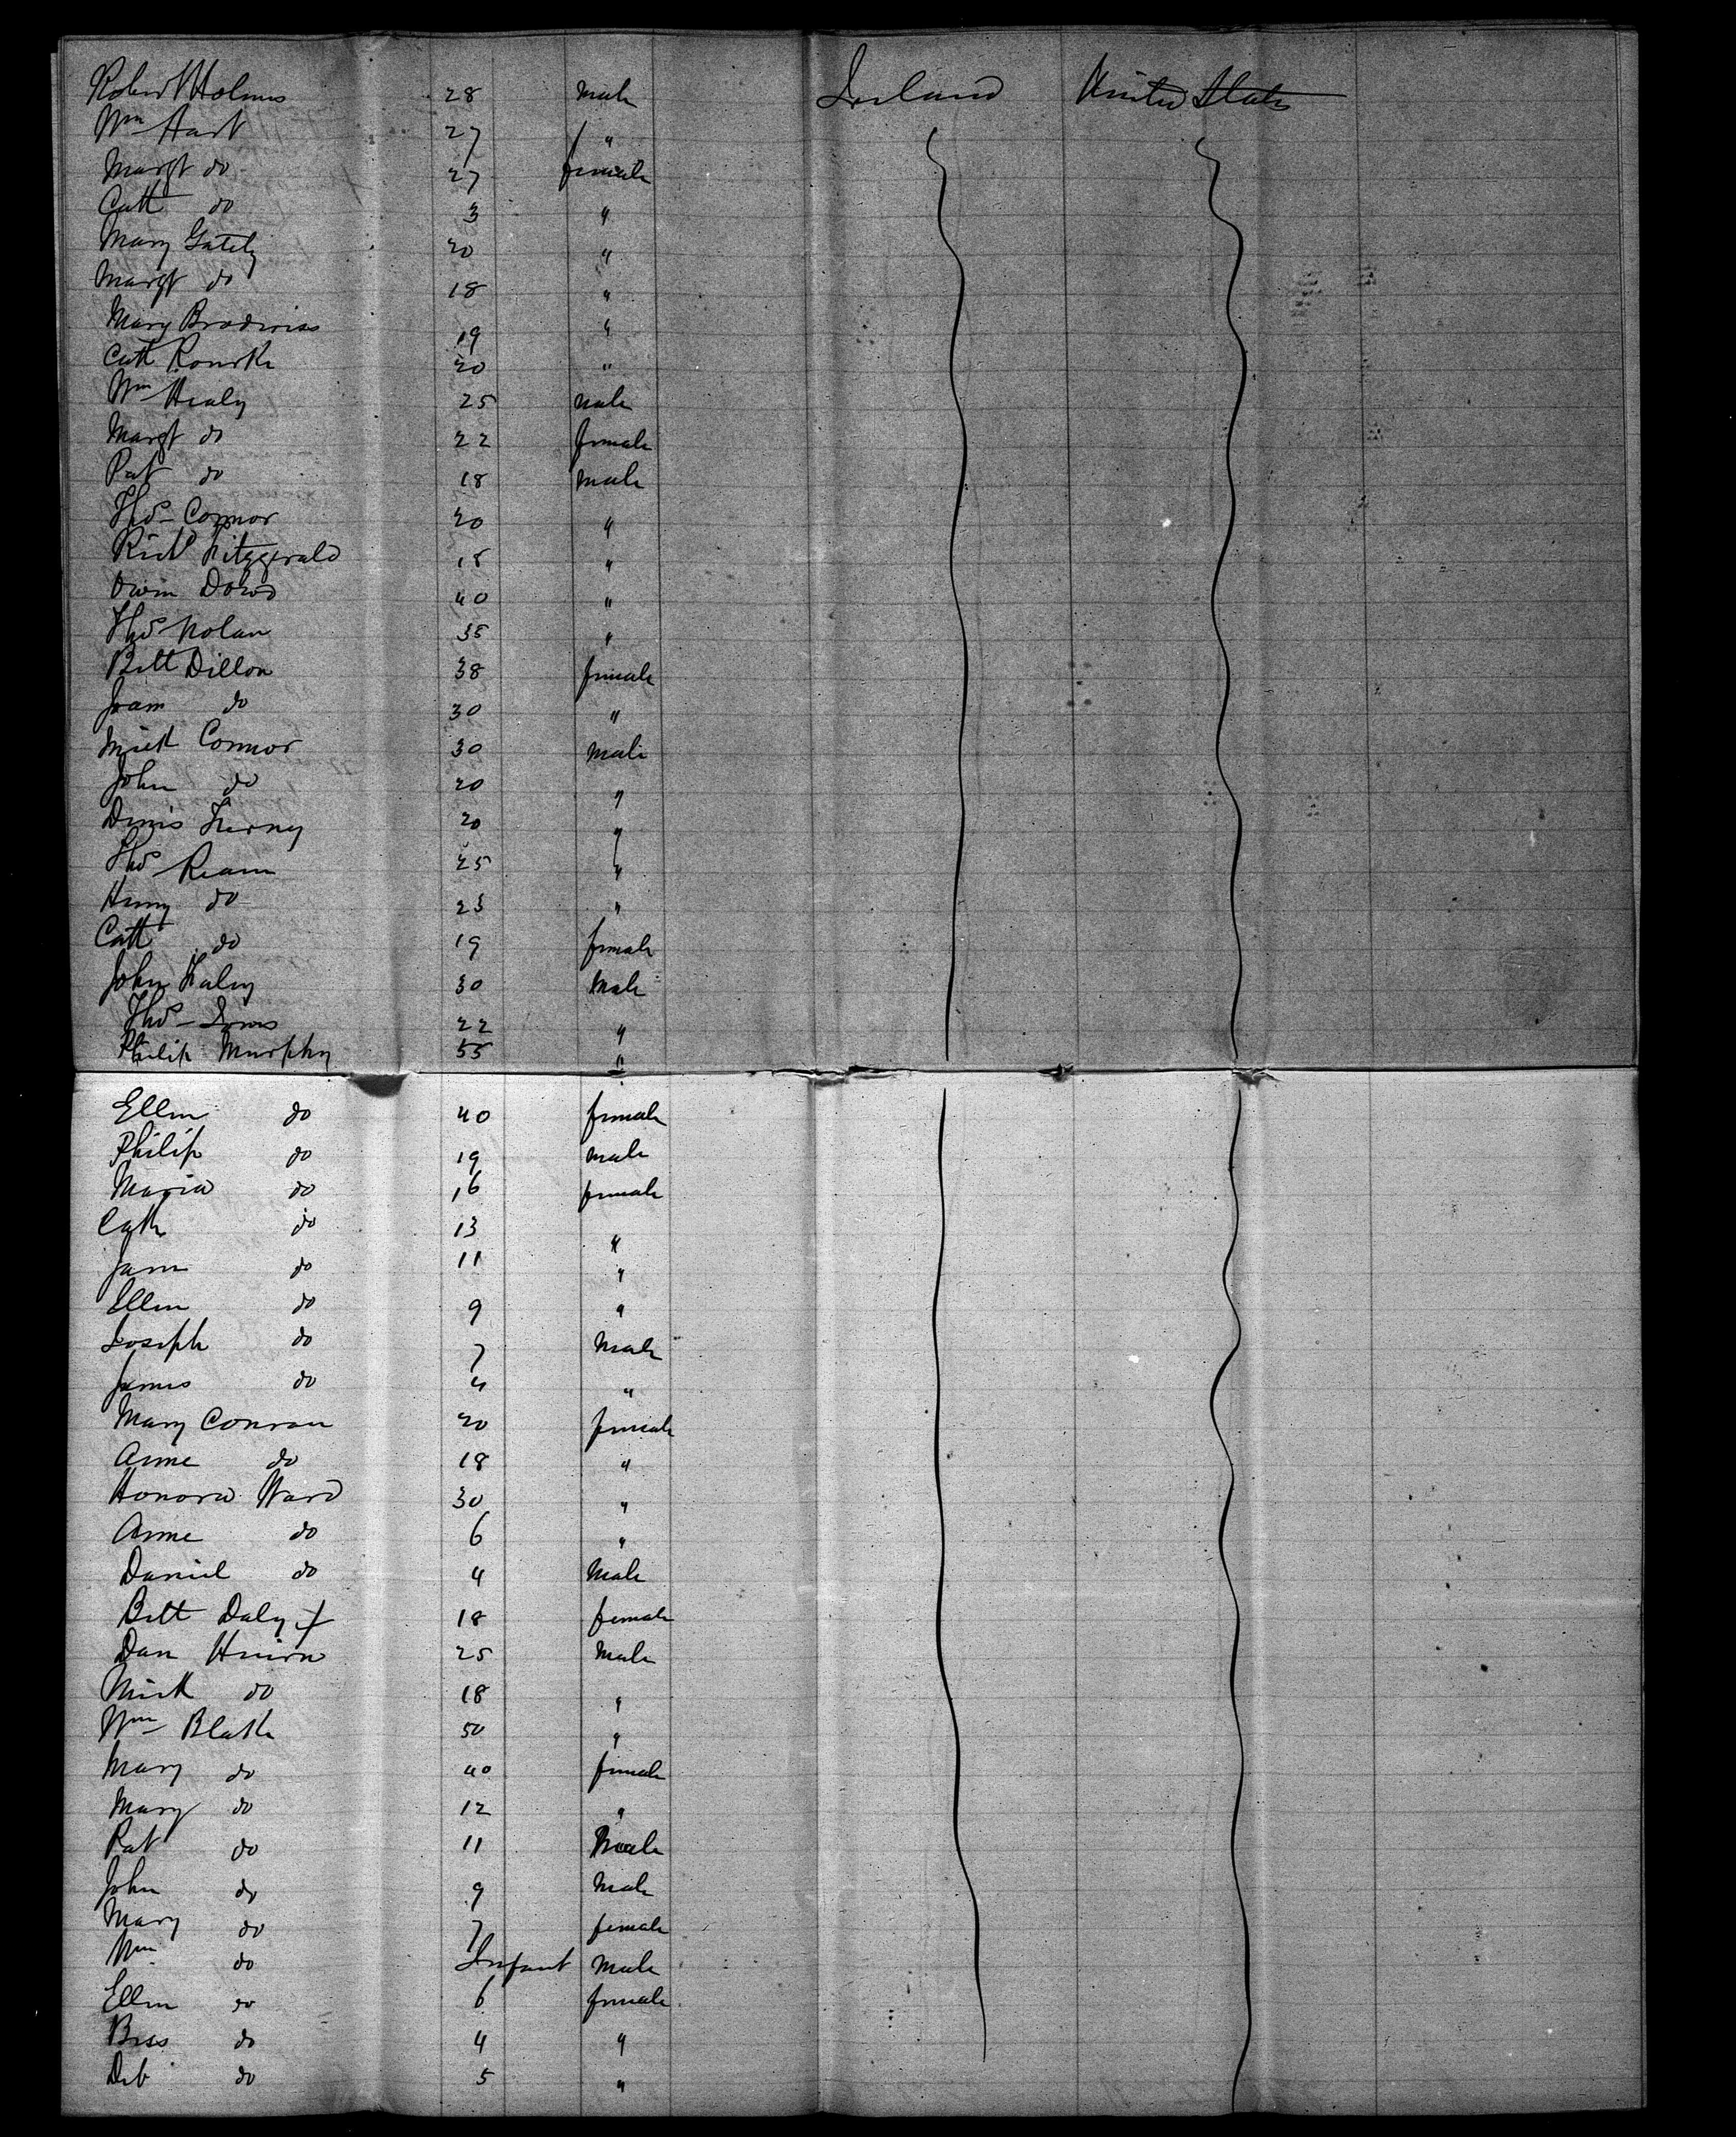 Robert Holmes 28 male Ireland United States
Wm Hart 27 "
Margt do 27 female
Cath do 3 "
Mary Gately 20 "
Margt do 18 "
Mary 19 "
Cath Rourke 20 "
Wm Healy 25 male
Margt do 22 female
Pat do 18 male
Thos Connor 20 "
Richd Fitzgerald 18 "
Owen Dowd 40 "
Thos Nolan 35 "
Bill Dillon 38 female
do 30 "
Mick Connor 30 male
John do 20 "
Denis 20 "
Thos 25 "
Henry do 23 "
Cath do 19 female
John 30 Male
Thos 22 "
Philip Murphy 55 "
Ellen do 40 female
Philip do 19 male
Maria do 16 female
Cath do 13 "
Jane do 11 "
Ellen do 9 "
Joseph do 7 Male
James do 4 "
Mary Conran 20 female
Anne do 18 "
Honora Ward 30 "
Anne do 6 "
Daniel do 4 Male
Bett Daly 18 female
Dan 25 Male
Mick do 18 "
Wm Blake 50 "
Mary do 40 female
Mary do 12 "
Pat do 11 Male
John do 9 Male
Mary do 7 female
Wm do Infant Male
Ellen do 6 female
Bess do 4 "
Deb do 5 "